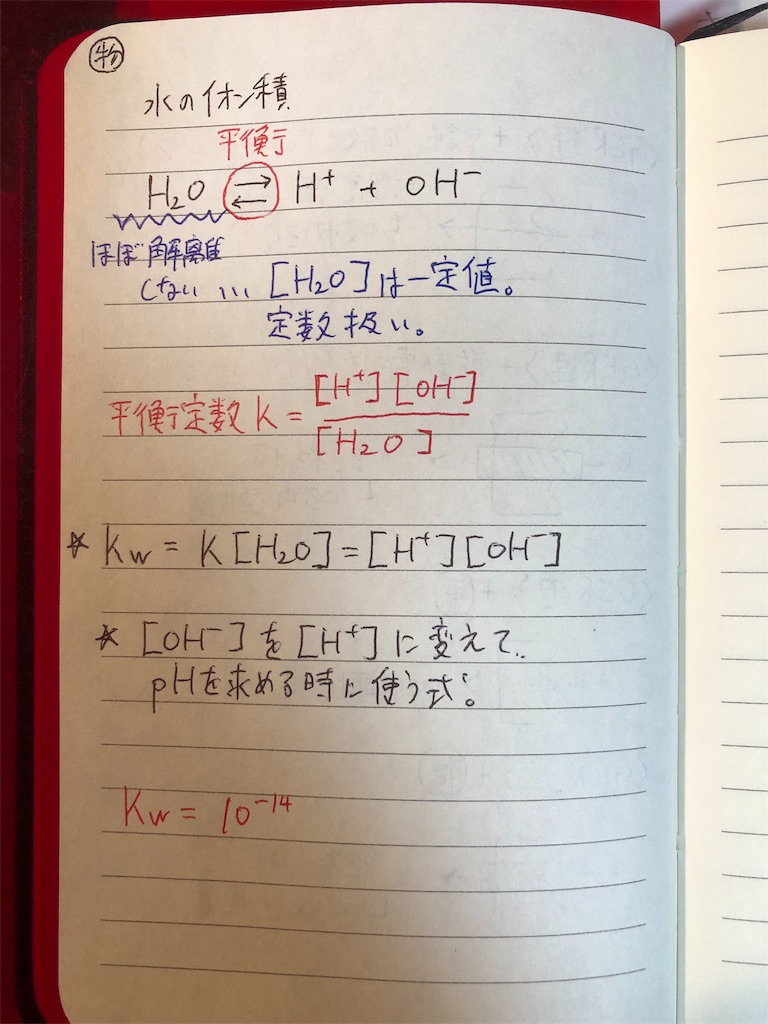 物
水のイオン積
平衡
H₂O ⇄ H⁺ + OH⁻
ほぼ解離
しない … [H₂O]は一定値。
定数扱い。
平衡定数 K = [H⁺][OH⁻] / [H₂O]
☆ Kw = K[H₂O] = [H⁺][OH⁻]
☆ [OH⁻]を[H⁺]に変えて..
pHを求める時に使う式。
Kw = 10⁻¹⁴